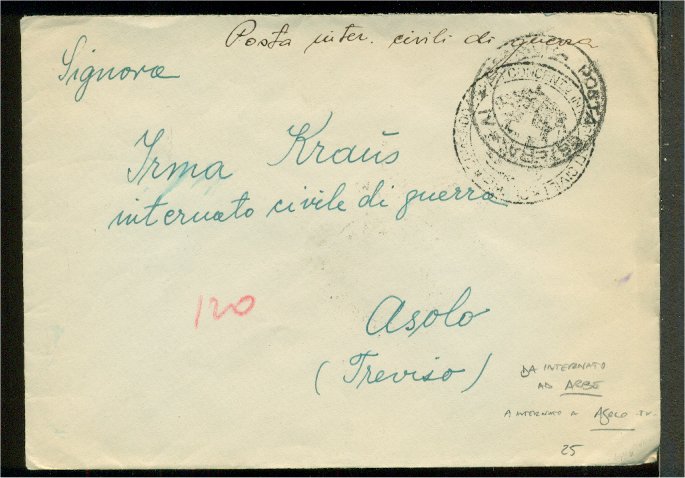 Posta inter. civili di guerra
Signora
Irma Kraus
internato civile di guerra
120
Asolo
(Treviso)
DA INTERNATO
AD ARBE
A INTERNATO A ASOLO TV.
25
POSTA ESTERA